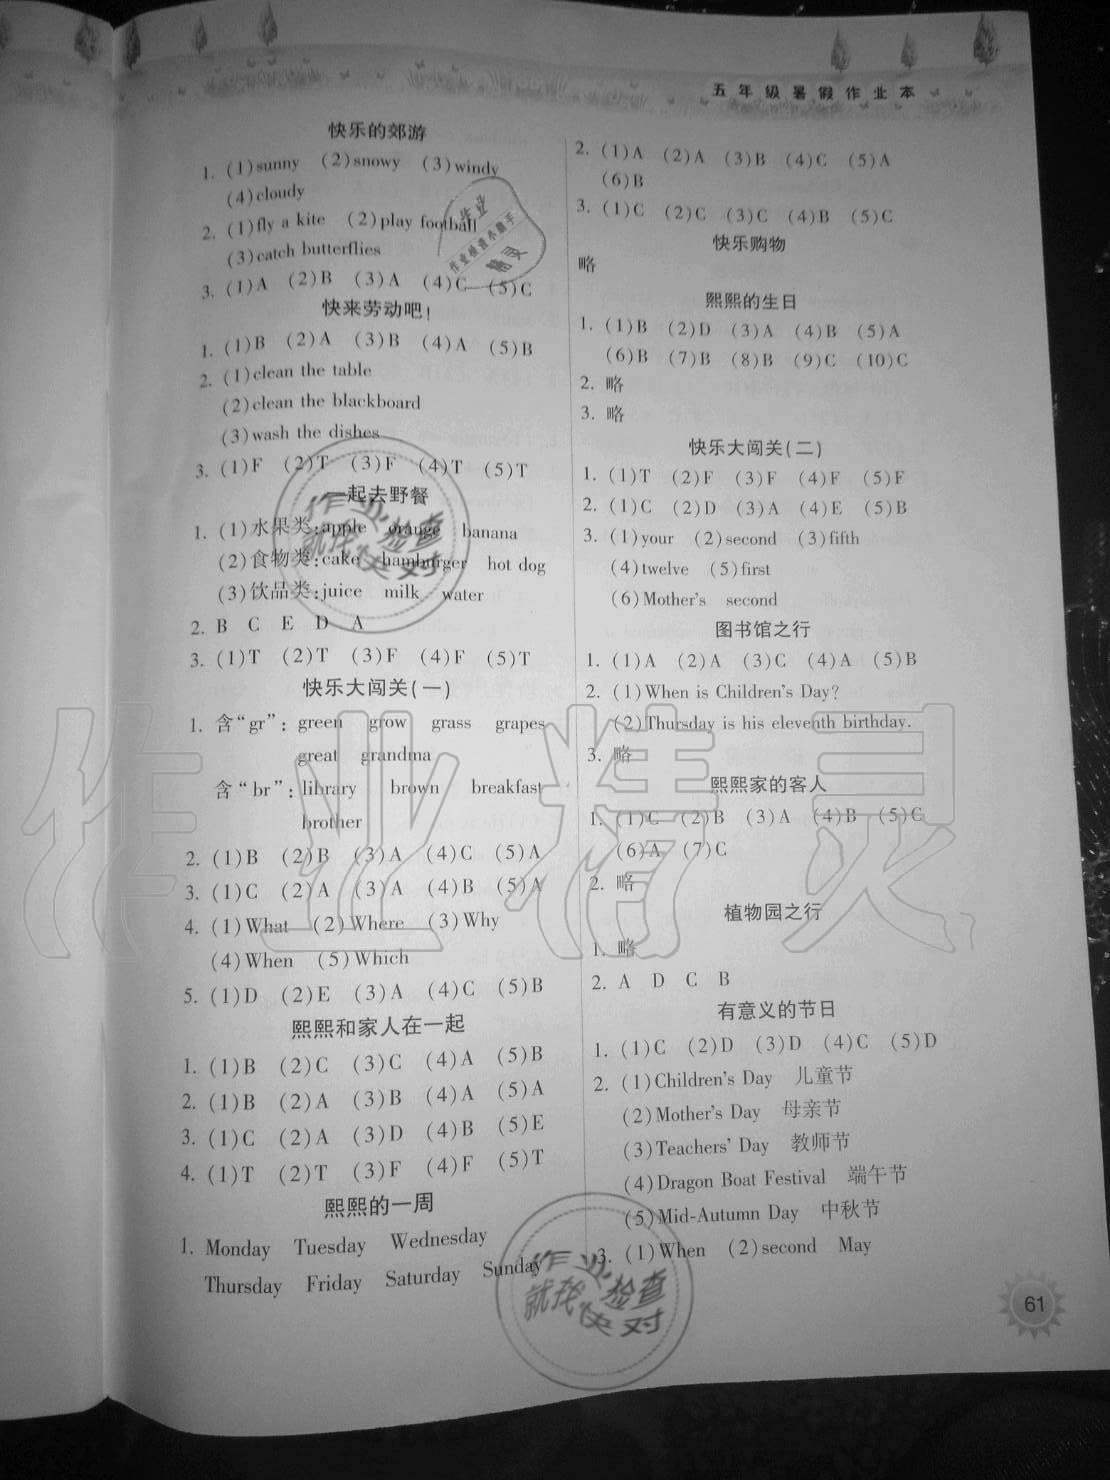 五年级暑假作业本
快乐的郊游
1. (1)sunny (2)snowy (3)windy
(4)cloudy
2. (1)fly a kite (2)play football
(3)catch butterflies
3. (1)A (2)B (3)A (4)C (5)C
快来劳动吧!
1. (1)B (2)A (3)B (4)A (5)B
2. (1)clean the table
(2)clean the blackboard
(3)wash the dishes
3. (1)F (2)T (3)F (4)T (5)T
一起去野餐
1. (1)水果类:apple orange banana
(2)食物类:cake hamburger hot dog
(3)饮品类:juice milk water
2. B C E D A
3. (1)T (2)T (3)F (4)F (5)T
快乐大闯关(一)
1. 含“gr”: green grow grass grapes
great grandma
含“br”: library brown breakfast
brother
2. (1)B (2)B (3)A (4)C (5)A
3. (1)C (2)A (3)A (4)B (5)A
4. (1)What (2)Where (3)Why
(4)When (5)Which
5. (1)D (2)E (3)A (4)C (5)B
熙熙和家人在一起
1. (1)B (2)C (3)C (4)A (5)B
2. (1)B (2)A (3)B (4)A (5)A
3. (1)C (2)A (3)D (4)B (5)E
4. (1)T (2)T (3)F (4)F (5)T
熙熙的一周
1. Monday Tuesday Wednesday
Thursday Friday Saturday Sunday
2. (1)A (2)A (3)B (4)C (5)A
(6)B
3. (1)C (2)C (3)C (4)B (5)C
快乐购物
略
熙熙的生日
1. (1)B (2)D (3)A (4)B (5)A
(6)B (7)B (8)B (9)C (10)C
2. 略
3. 略
快乐大闯关(二)
1. (1)T (2)F (3)F (4)F (5)F
2. (1)C (2)D (3)A (4)E (5)B
3. (1)your (2)second (3)fifth
(4)twelve (5)first
(6)Mother's second
图书馆之行
1. (1)A (2)A (3)C (4)A (5)B
2. (1)When is Children's Day?
(2)Thursday is his eleventh birthday.
3. 略
熙熙家的客人
1. (1)C (2)B (3)A (4)B (5)C
(6)A (7)C
2. 略
植物园之行
1. 略
2. A D C B
有意义的节日
1. (1)C (2)D (3)D (4)C (5)D
2. (1)Children's Day 儿童节
(2)Mother's Day 母亲节
(3)Teachers' Day 教师节
(4)Dragon Boat Festival 端午节
(5)Mid-Autumn Day 中秋节
3. (1)When (2)second May
61
作业精灵
作业
作业检查小助手
精灵
作业检查
就找快对
作业检查
就找快对